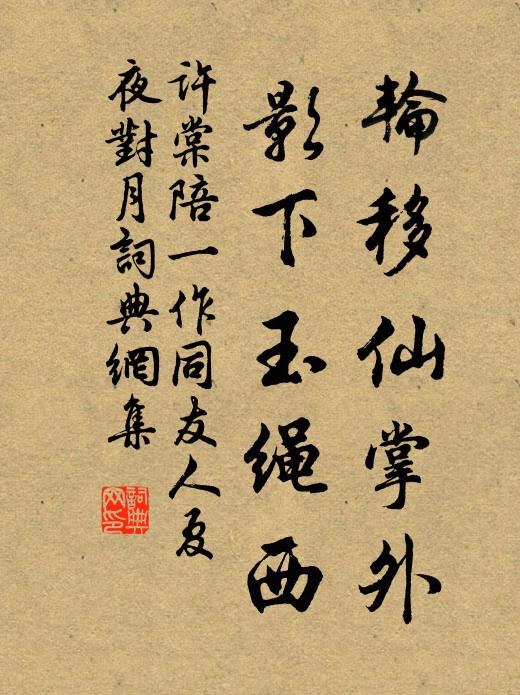 輪移仙掌外
影下玉繩西
許棠陪一作同友人夏
夜對月詞典網集
詞典
网印